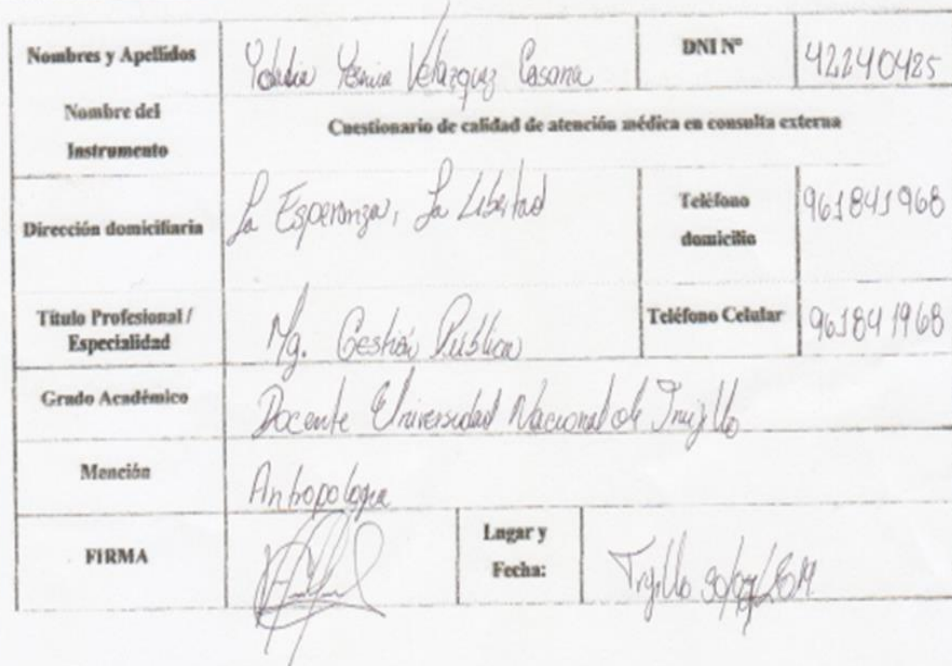 Nombres y Apellidos Velazquez Casana DNI Nº 42240425
Nombre del
Instrumento
Cuestionario de calidad de atención médica en consulta externa
Dirección domiciliaria La Esperanza, La Libertad
Teléfono
domicilio
961841968
Título Profesional /
Especialidad
Mg. Gestión Publica
Teléfono Celular 961841968
Grado Académico Docente Universidad Nacional de Trujillo
Mención Antropologia
FIRMA
Lugar y
Fecha:
Trujillo